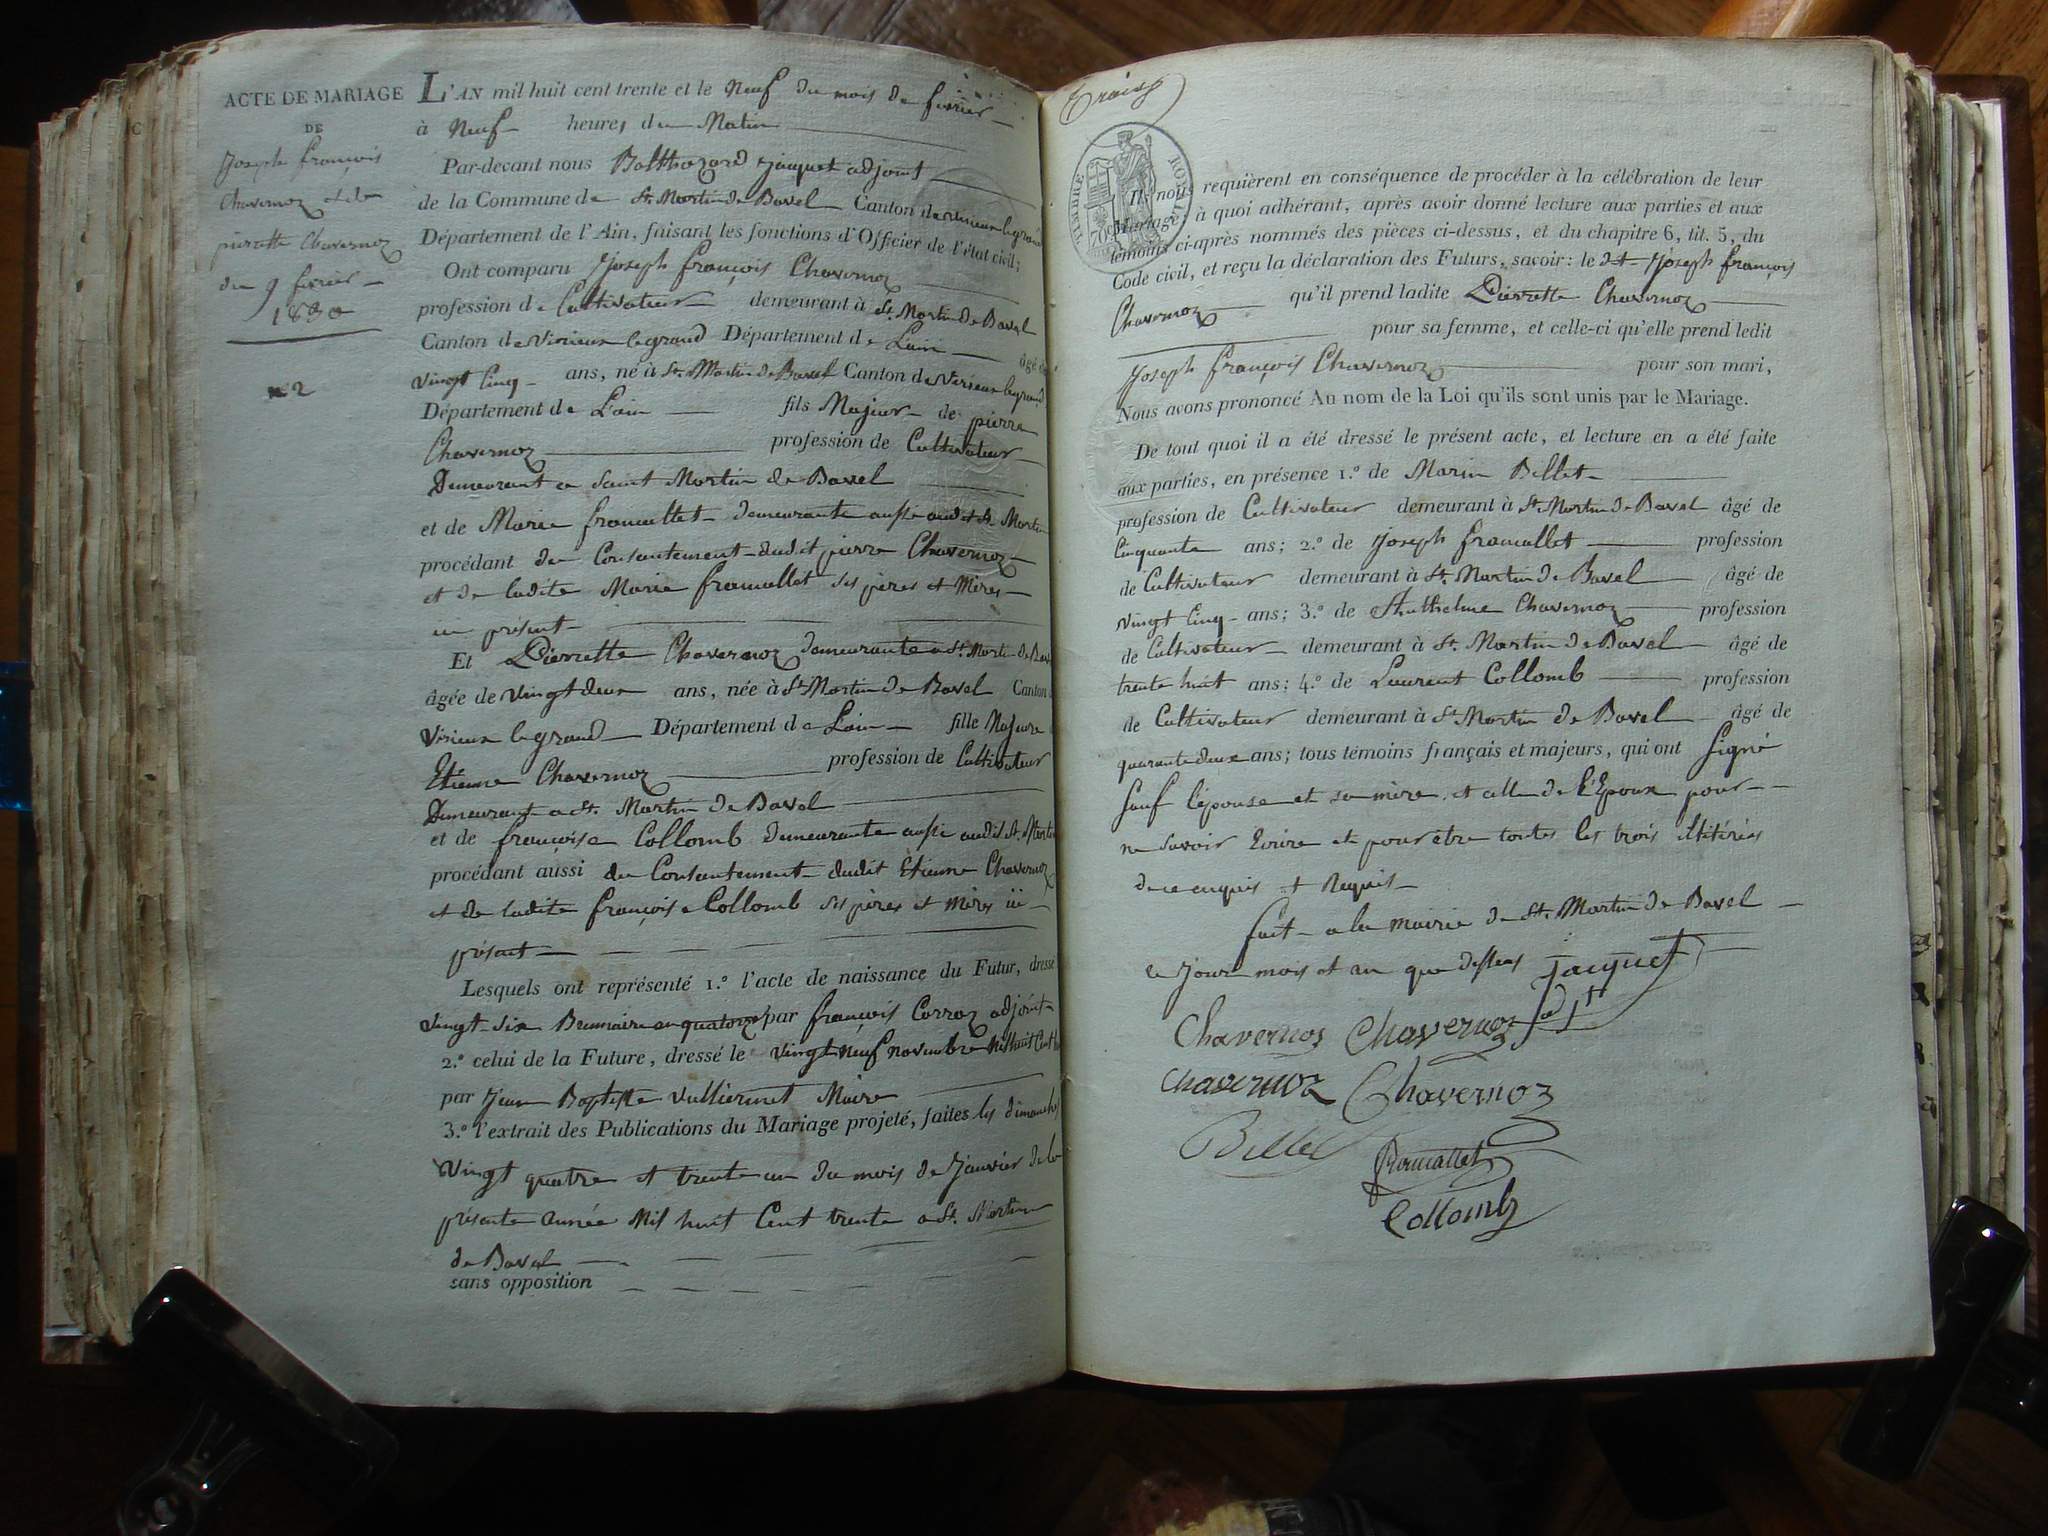 ACTE DE MARIAGE
DE
Joseph françois
Chavernoz et de
pierrette Chavernoz
du 9 fevrier
1830
n.º 2
L'AN mil huit cent trente et le Neuf du mois de fevrier
à Neuf heures du Matin
Par-devant nous Balthazard Jacquet adjoint
de la Commune de St. Martin de Bavel Canton de virieux le grand
Département de l'Ain, faisant les fonctions d'Officier de l'état civil;
Ont comparu Joseph françois Chavernoz
profession de Cultivateur demeurant à St. Martin De Bavel
Canton de Virieux le grand Département de L'ain âgé de
vingt Cinq ans, né à St. Martin de Bavel Canton de Virieux le grand
Département de L'ain fils Majeur de pierre
Chavernoz profession de Cultivateur
Demeurant a Saint Martin de Bavel
et de Marie framallet demeurante aussi audit St Martin
procédant du Consentement dudit pierre Chavernoz
et de ladite Marie framallet ses pères et Mères
ici présent
Et Pierrette Chavernoz demeurante a St. Martin de Bavel
âgée de vingt deux ans, née à St Martin de Bavel Canton
Virieux le grand Département de L'ain fille Majeure
Etienne Chavernoz profession de Cultivateur
Demeurant a St. Martin de Bavel
et de françoise Collomb demeurante aussi audit St. Martin
procédant aussi du Consentement dudit Etienne Chavernoz
et de ladite françoise Collomb ses pères et Mères ici
présent
Lesquels ont représenté 1.º l'acte de naissance du Futur, dressé
vingt-six Brumaire an quatorze par françois Corroz adjoint
2.º celui de la Future, dressé le vingt Neuf novembre Mil huit Cent
par Jean Baptiste Vulliermet Maire
3.º l'extrait des Publications du Mariage projeté, faites les dimanches
Vingt quatre et trente un du mois de Janvier de la
présente année Mil huit Cent trente a St. Martin
de Bavel
sans opposition
TIMBRE ROYAL
70 c
Ils nous requièrent en conséquence de procéder à la célébration de leur
Mariage; à quoi adhérant, après avoir donné lecture aux parties et aux
témoins ci-après nommés des pièces ci-dessus, et du chapitre 6, tit. 5, du
Code civil, et reçu la déclaration des Futurs, savoir: le dt Joseph françois
Chavernoz qu'il prend ladite Pierrette Chavernoz
pour sa femme, et celle-ci qu'elle prend ledit
Joseph françois Chavernoz pour son mari,
Nous avons prononcé Au nom de la Loi qu'ils sont unis par le Mariage.
De tout quoi il a été dressé le présent acte, et lecture en a été faite
aux parties, en présence 1.º de Marin Billet
profession de Cultivateur demeurant à St. Martin de Bavel âgé de
Cinquante ans; 2.º de Joseph framallet profession
de Cultivateur demeurant à St. Martin de Bavel âgé de
vingt Cinq ans; 3.º de Anthelme Chavernoz profession
de Cultivateur demeurant à St. Martin de Bavel âgé de
trente huit ans; 4.º de Laurent Collomb profession
de Cultivateur demeurant à St Martin de Bavel âgé de
quarante deux ans; tous témoins français et majeurs, qui ont Signé
Sauf l'épouse et sa mère et celle de l'Epoux pour
ne Savoir Ecrire et pour être toutes les trois illitérées
de ce enquis et Requis
fait a la mairie de St. Martin de Bavel
le Jour mois et an que dessus Jacquet
Chavernoz Chavernoz
Chavernoz Chavernoz
Billet
framallet
Collomb